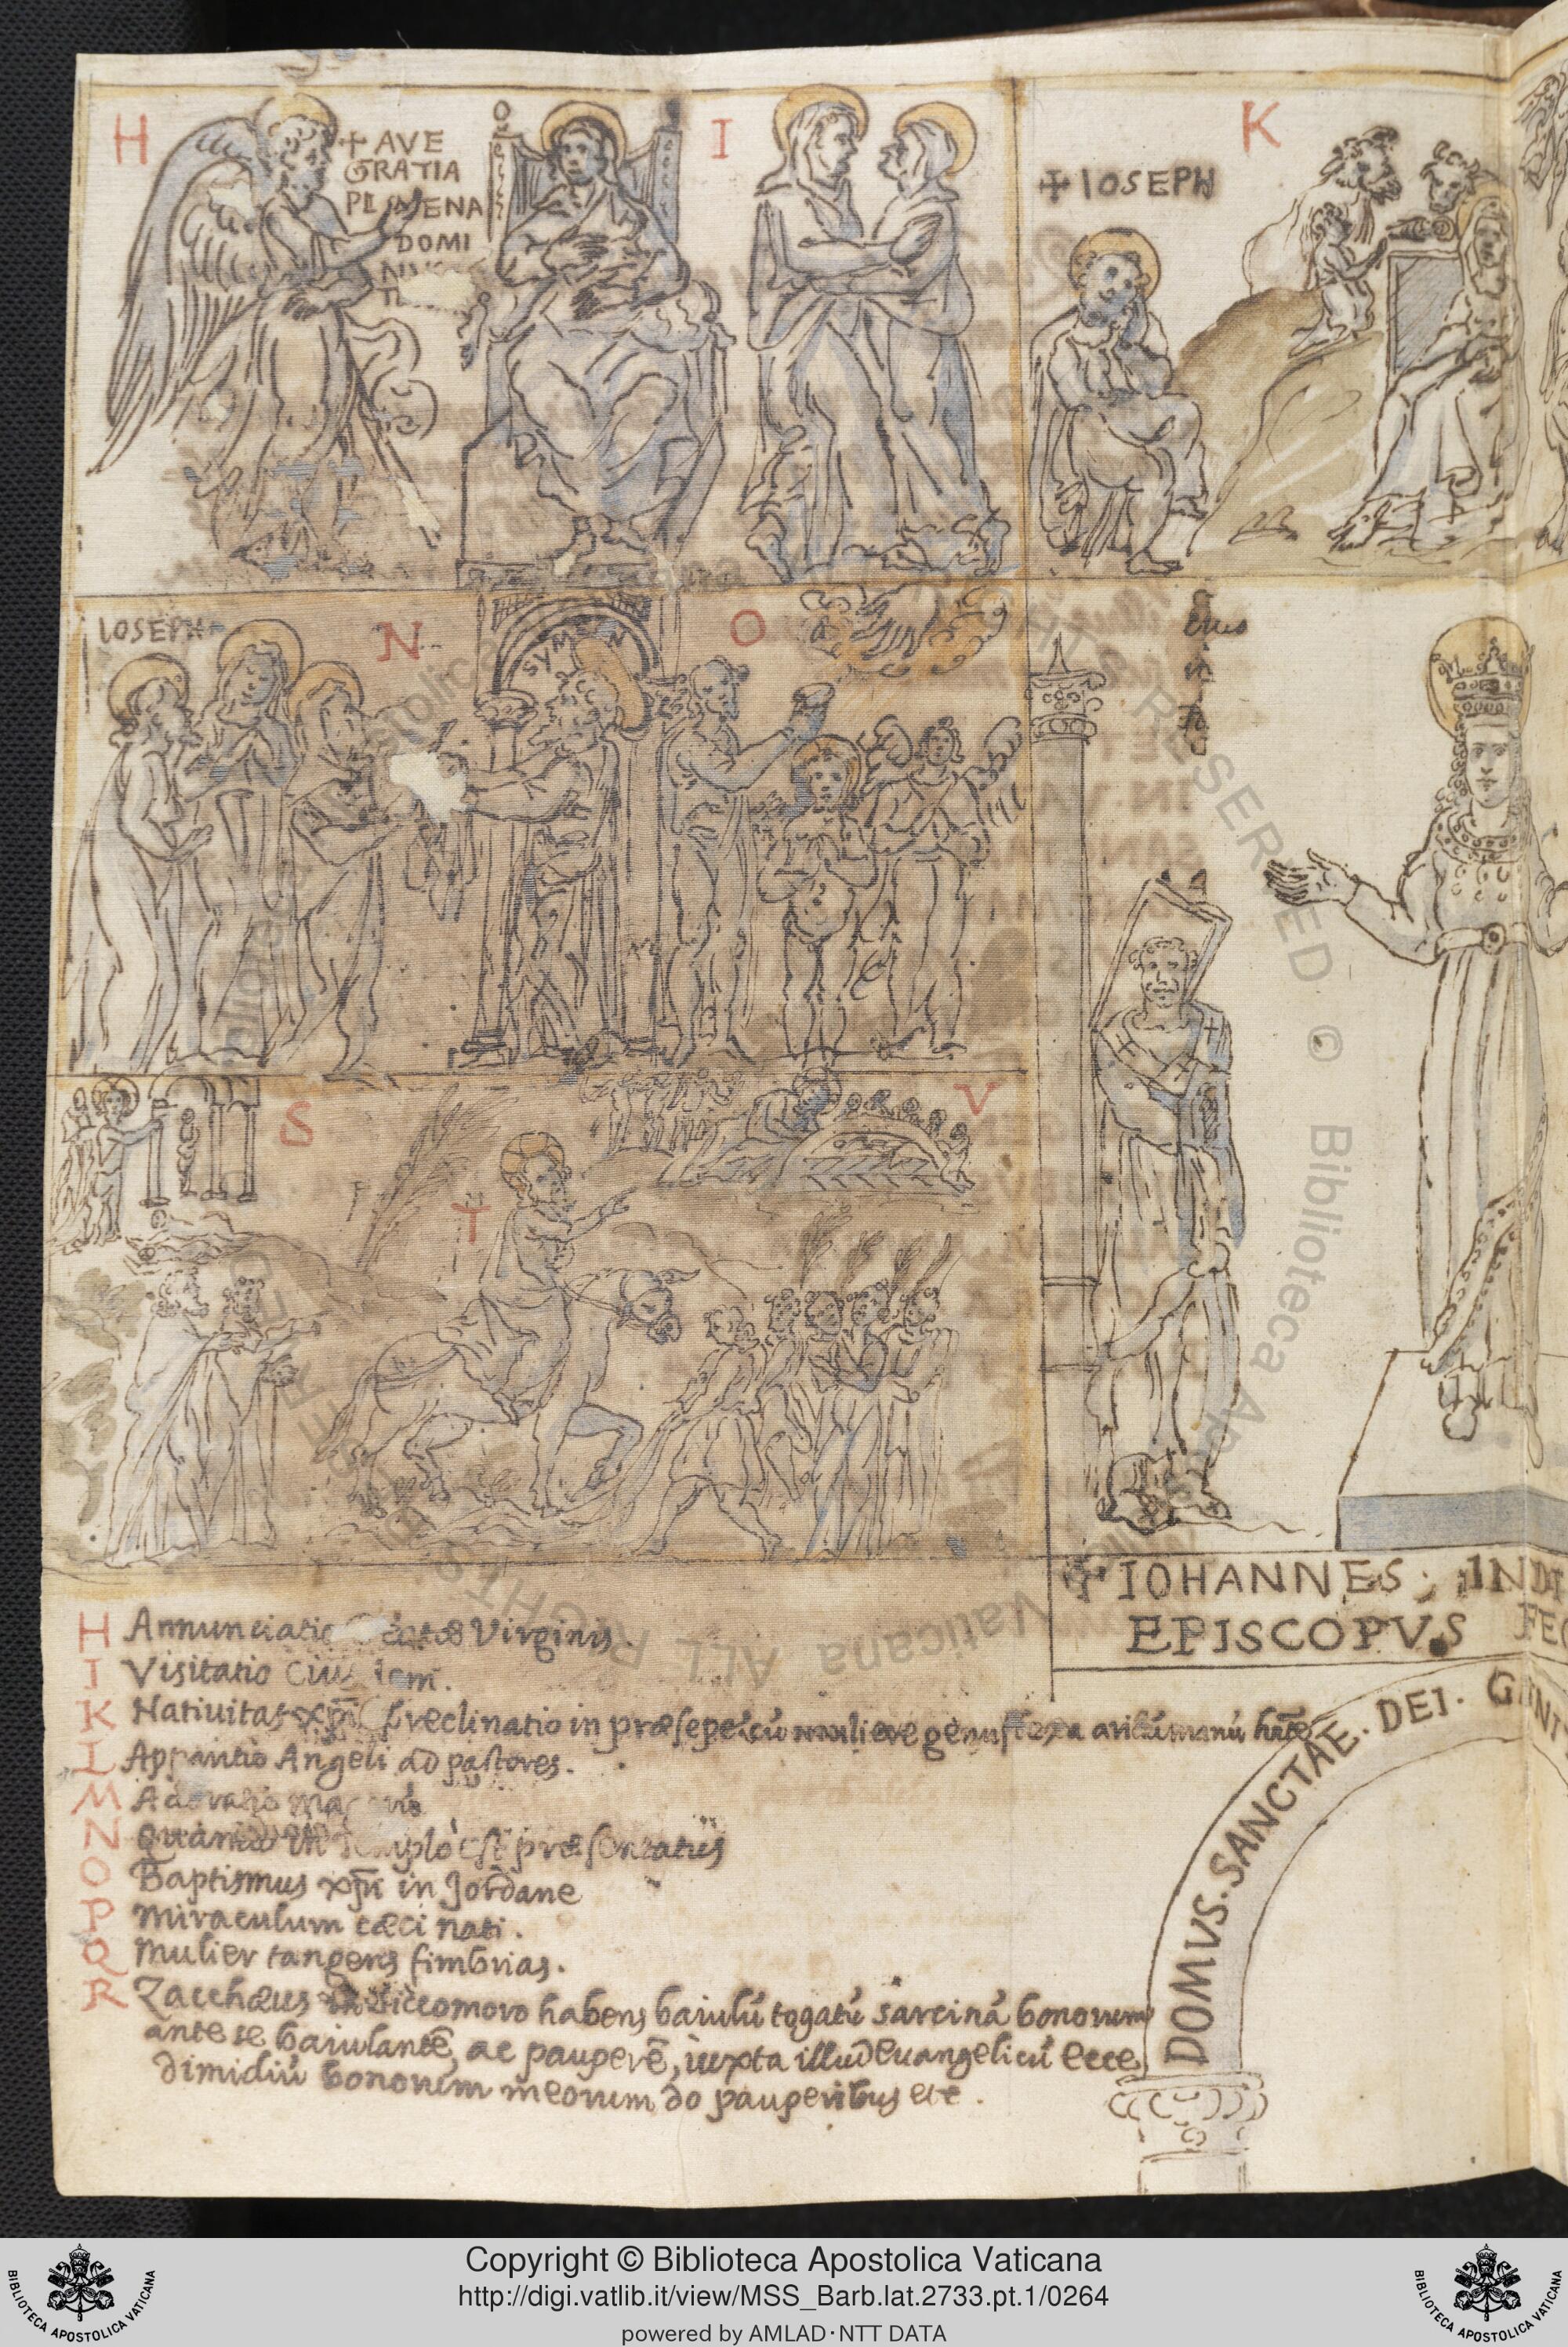 H
+ AVE
GRATIA
PL ENA
DOMI
I
K
+ IOSEPH
IOSEPH
N
SYMEON
O
S
T
V
+ IOHANNES · INDI
EPISCOPVS FEC
DOMVS · SANCTAE · DEI · GENI
H Annunciatio Virginis.
I Visitatio
K Natiuitas xpi præclinatio in præsepe cū muliere genuflexa aridā manū hnte
L Apparitio Angeli ad pastores.
M Adoratio Magorū
N Quando in templo est præsentatus
O Baptismus xpi in Jordane
P Miraculum cæci nati.
Q Mulier tangens fimbrias.
R Zacchæus in siccomoro habens baiulū togatū sarcinā bonorum
ante se baiulantē, ac pauperē, iuxta illud euangelicū Ecce
dimidiū bonorum meorum do pauperibus etc.
Copyright © Biblioteca Apostolica Vaticana
http://digi.vatlib.it/view/MSS_Barb.lat.2733.pt.1/0264
powered by AMLAD·NTT DATA
BIBLIOTECA APOSTOLICA VATICANA
BIBLIOTECA APOSTOLICA VATICANA